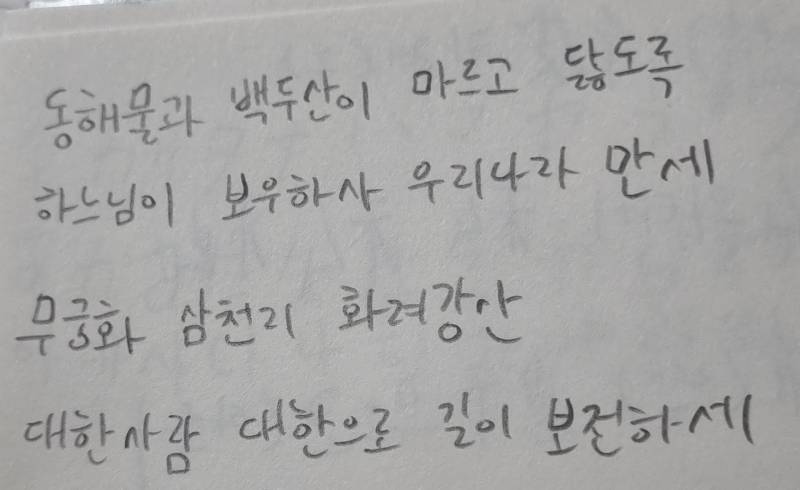 동해물과 백두산이 마르고 닳도록
하느님이 보우하사 우리나라 만세
무궁화 삼천리 화려강산
대한사람 대한으로 길이 보전하세